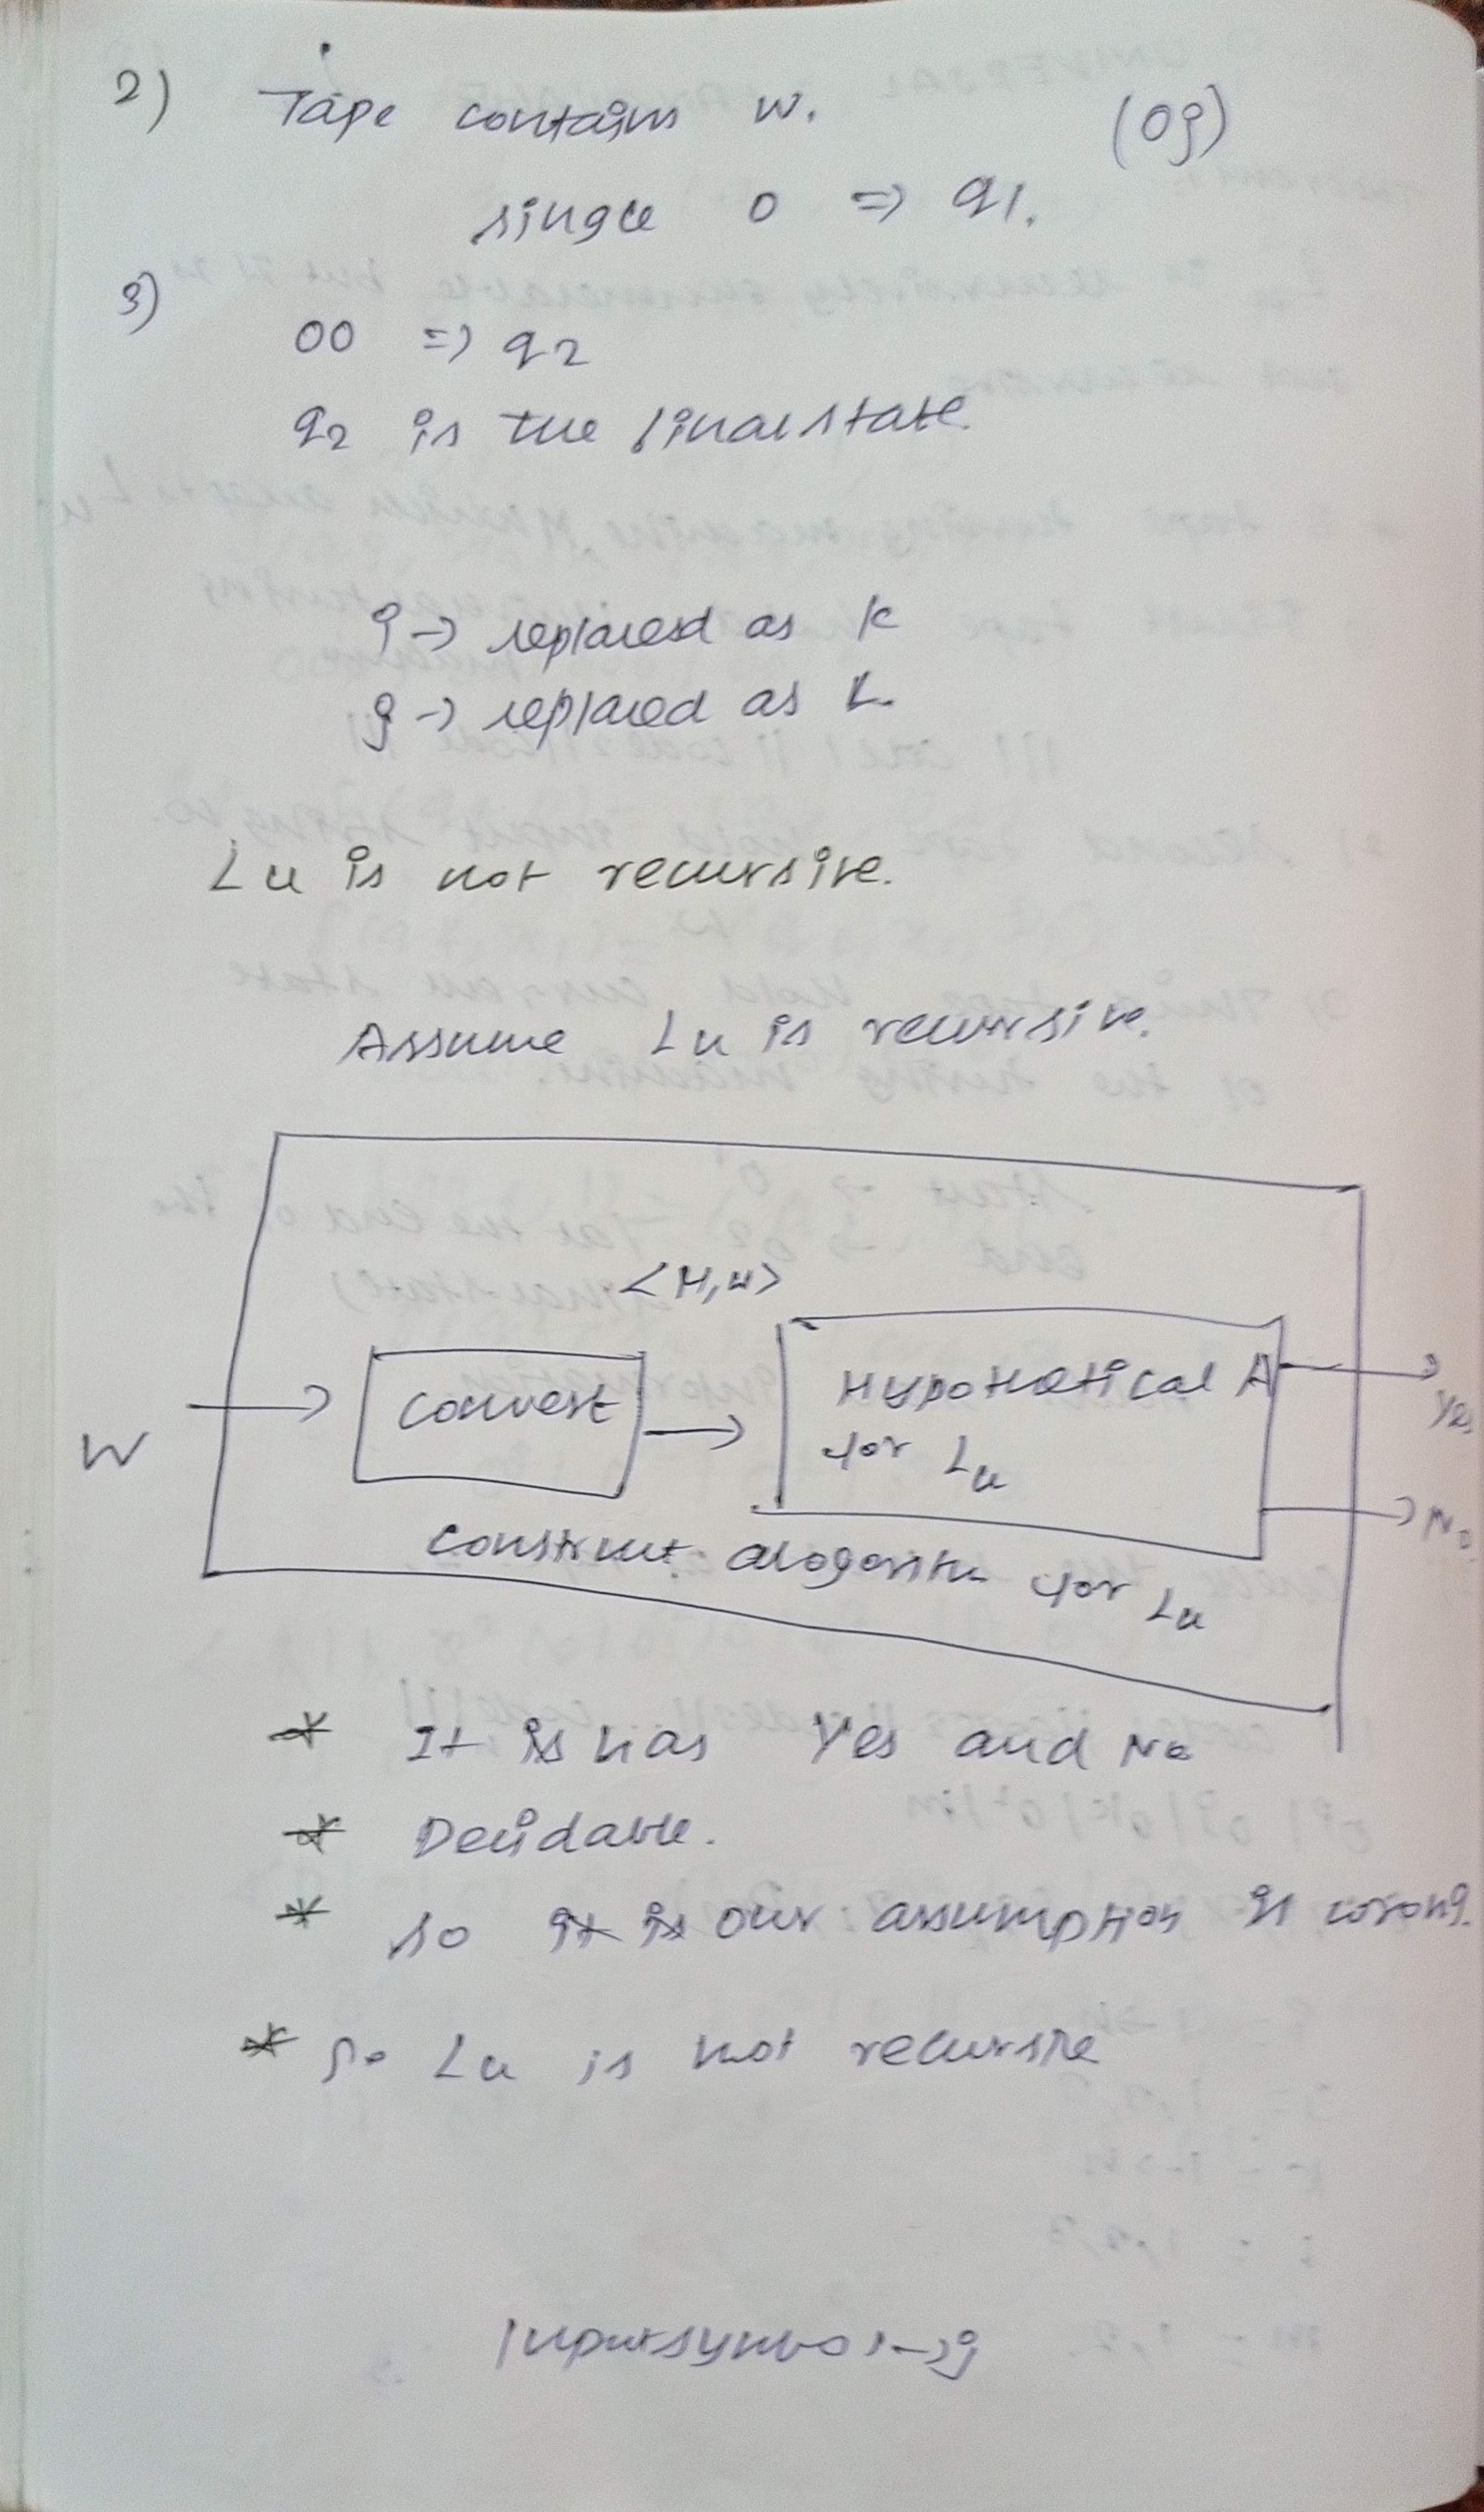 2) Tape contains w. (0j)
single 0 => q1.
3)
00 => q2
q2 is the final state.
i -> replaced as k
j -> replaced as L.
Lu is not recursive.
Assume Lu is recursive.
<M,w>
W
convert
Hypothetical A
for Lu
Yes
No
Construct alogorithm for Lu
* It is has Yes and No
* Decidable.
* so it is our assumption is wrong.
* So Lu is not recursive
Input symbol -> j